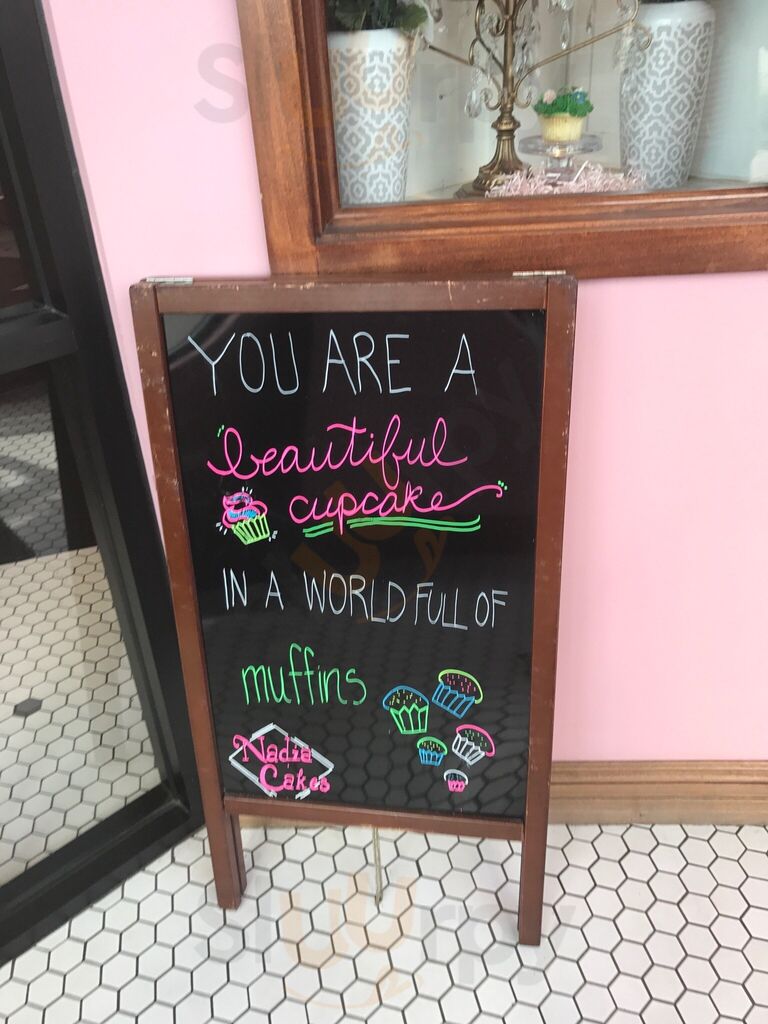 YOU ARE A
beautiful
cupcake
IN A WORLD FULL OF
muffins
Nadia
Cakes
sluurpy